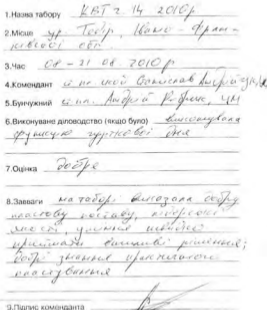 1.Назва табору КВТ ч 14 2010р
2.Місце ур. Тебр, Івано-Фран-
ківської обл
3.Час 08-21 08.2010р
4.Комендант Станіслав Андрій
5.Бунчужний Андрій
6.Виконуване діловодство (якщо було) виконувала
функцію гурткової дня
7.Оцінка добре
8.Завваги на таборі показала добру
пластову поставу, лідерські
якості, уміння швидко
приймати важливі рішення;
добрі знання практичного
пластування
9.Підпис коменданта